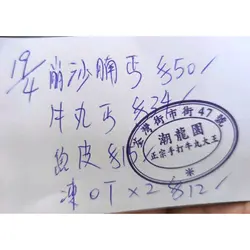 19/4
崩沙腩丐 $50/
牛丸丐 $24/
魚皮 $15/
凍OT×2 $12/
荃灣街市街47號
潮龍園
正宗手打牛丸大王